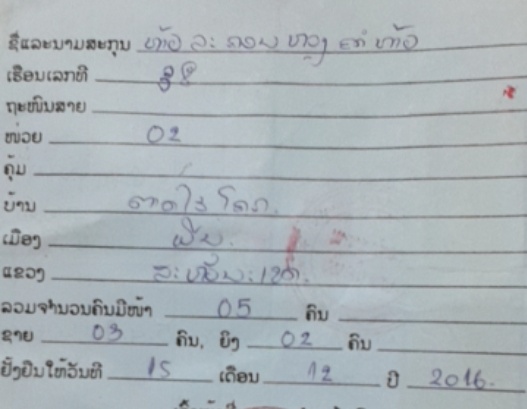 ຊື່ແລະນາມສະກຸນ ທ້າວ
ເຮືອນເລກທີ 38
ຖະໜົນສາຍ
ໜ່ວຍ 02
ຄຸ້ມ
ບ້ານ
ເມືອງ ພີນ.
ແຂວງ ສະຫວັນນະເຂດ.
ລວມຈຳນວນຄົນມີໜ້າ 05 ຄົນ
ຊາຍ 03 ຄົນ, ຍິງ 02 ຄົນ
ຢັ້ງຢືນໃຫ້ວັນທີ 15 ເດືອນ 12 ປີ 2016.